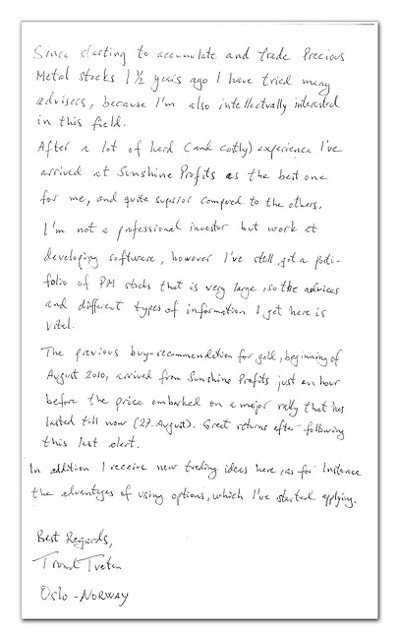 Since starting to accumulate and trade Precious
Metal stocks 1 ½ years ago I have tried many
advisers, because I'm also intellectually interested
in this field.
After a lot of hard (and costly) experience I've
arrived at Sunshine Profits as the best one
for me, and quite superior compared to the others.
I'm not a professional investor but work at
developing software, however I've still got a port-
folio of PM stocks that is very large, so the advices
and different types of information I get here is
vital.
The previous buy-recommendation for gold, beginning of
August 2010, arrived from Sunshine Profits just an hour
before the price embarked on a major rally that has
lasted till now (27. August). Great returns after following
this last alert.
In addition I receive new trading ideas here, as for Instance
the advantages of using options, which I've started applying.
Best Regards,
Trond Tveten
Oslo - NORWAY